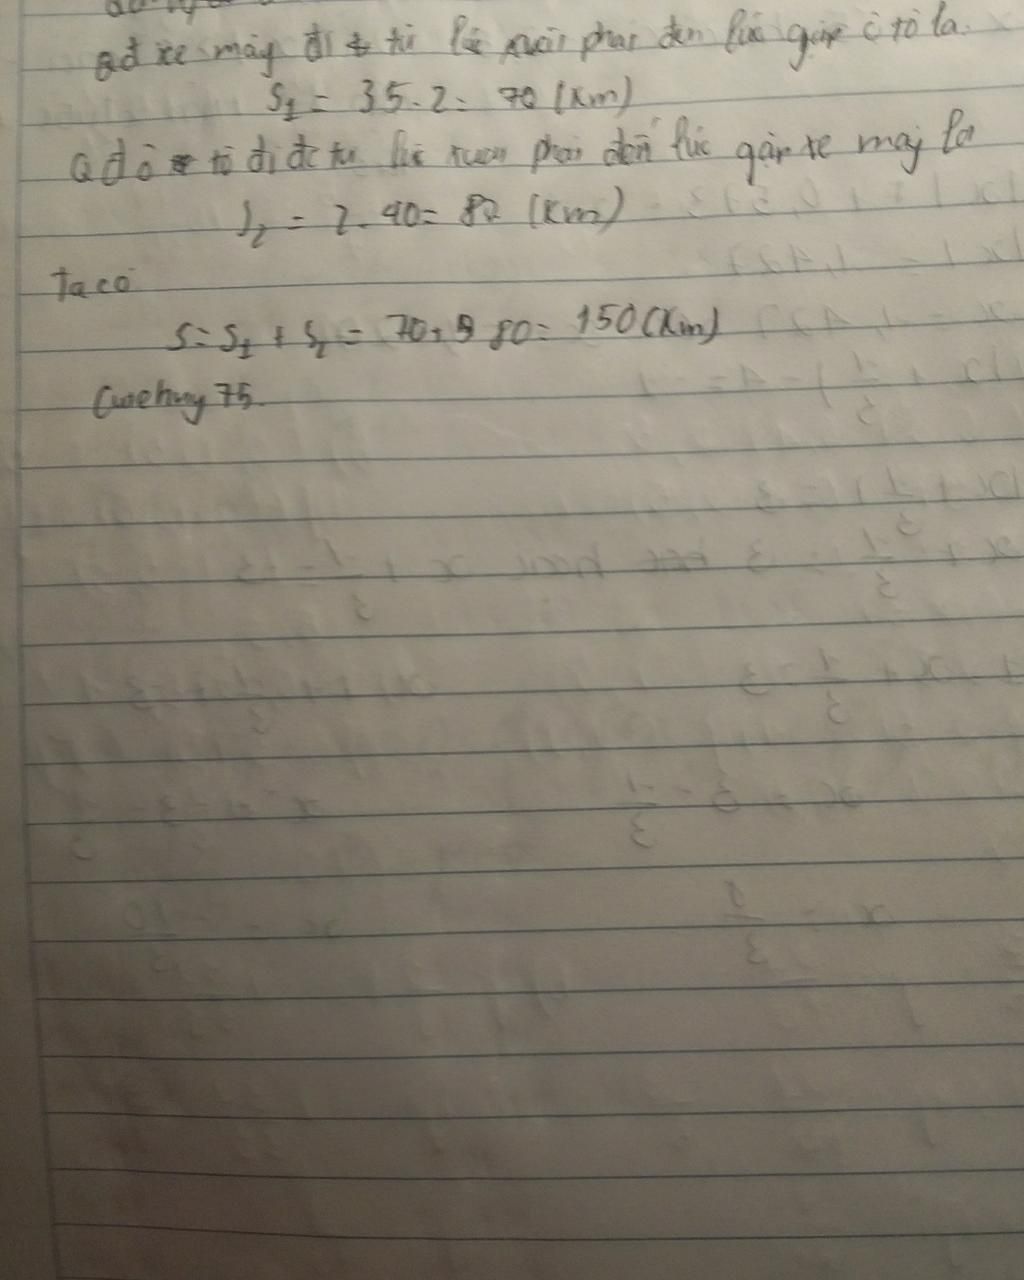 qđ xe máy đi từ lúc xuất phát đến lúc gặp ô tô là.
S₁ = 35.2 = 70 (Km)
Qđ ô tô đi đc từ lúc xuất phát đến lúc gặp xe máy là
S₂ = 2.40 = 80 (Km)
Ta có
S = S₁ + S₂ = 70 + 80 = 150 (Km)
75.